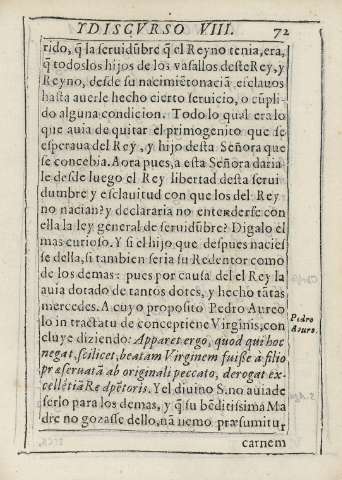 Y DISCVRSO VIII. 72
rido, q̃ la seruidũbre q̃ el Reyno tenia, era,
q̃ todos los hijos de los vasallos deste Rey, y
Reyno, desde su nacimiẽto nacian esclauos
hasta auerle hecho cierto seruicio, o cũpli-
do alguna condicion. Todo lo qual era lo
que auia de quitar el primogenito que se
esperaua del Rey, y hijo desta Señora que
se concebia. Aora pues, a esta Señora daria-
le desde luego el Rey libertad desta serui
dumbre y esclauitud con que los del Rey
no nacian? y declararia no entenderse con
ella la ley general de seruidũbre? Digalo el
mas curioso. Y si el hijo que despues nacies
se della, si tambien seria su Redentor como
de los demas: pues por causa del el Rey la
auia dotado de tantos dotes, y hecho tãtas
mercedes. A cuyo proposito Pedro Aureo
lo in tractatu de conceptiene Virginis, con
cluye diziendo: Apparet ergo, quod qui hoc
negat, scilicet, beatam Virginem fuisse à filio
præseruatã ab originali peccato, derogat ex-
cellẽtiã Redẽptoris. Y el diuino S. no auia de
serlo para los demas, y q̃ su bẽditissima Ma
dre no gozasse dello, nã nemo præsumitur
carnem
Pedro
Aureo.